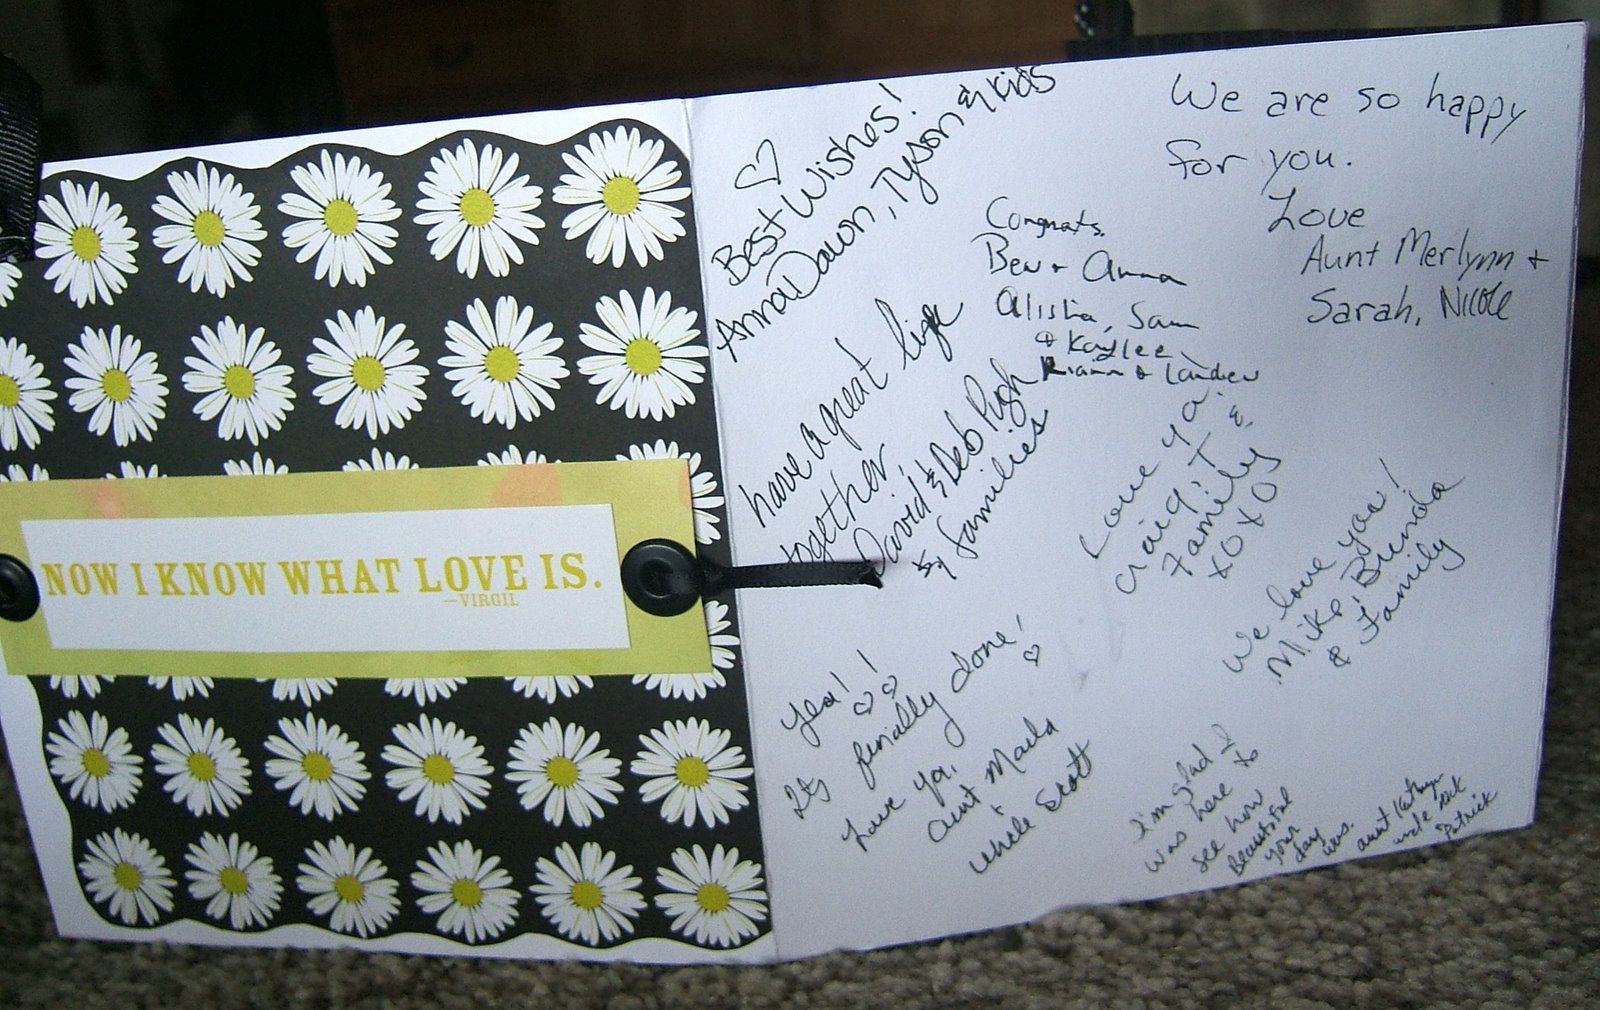 NOW I KNOW WHAT LOVE IS.
—VIRGIL
Best Wishes!
AnnaDawn, Tyson & kids
We are so happy
for you.
Love
Aunt Merlynn +
Sarah, Nicole
Congrats.
Ben + Anna
Alisha, Sam
+ Kaylee
Riann + Landen
have a great life
together
David & Deb Pugh
& families
Love ya!
Craig, T &
Family
XOXO
We love you!
Mike, Brenda
& Family
Yea!
Its finially done!
Love ya,
Aunt Marla
Uncle Scott
I'm glad I
was here to
see how
Beautiful
your
day
was.
Aunt Kathryn
uncle
Patrick